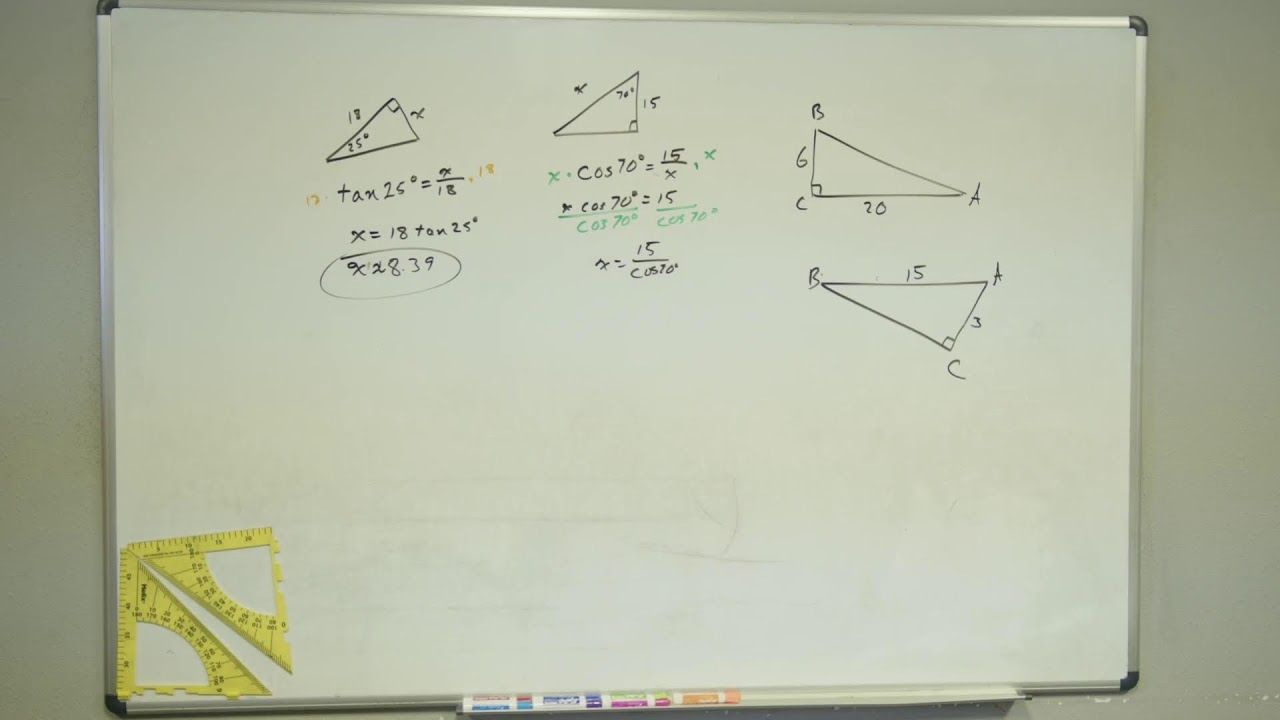 18
x
25°
18 · tan 25° = x/18 · 18
x = 18 tan 25°
x ≈ 8.39
x
70°
15
x · cos 70° = 15/x · x
x cos 70° = 15
cos 70° cos 70°
x = 15/cos 70°
B
6
C
20
A
B
15
A
3
C
Helix